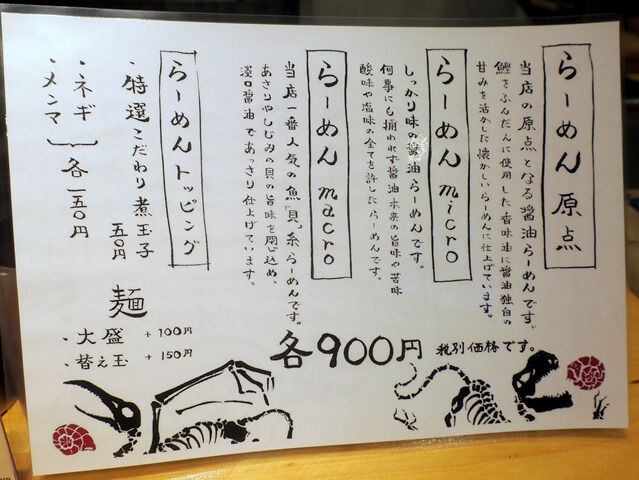 らーめん 原点
当店の原点となる醤油らーめんです。
鰹をふんだんに使用した香味油に醤油独自の
甘みを活かした懐かしいらーめんに仕上げています。
らーめん micro
しっかり味の醤油らーめんです。
何事にも捕われず醤油本来の旨味や苦味
酸味や塩味の全てを許したらーめんです。
らーめん macro
当店一番人気の魚「貝」系らーめんです。
あさりやしじみの貝の旨味を閉じ込め、
淡口醤油であっさり仕上げています。
各900円 税別価格です。
らーめんトッピング
・特選こだわり煮玉子
五〇円
・ネギ
・メンマ
各一五〇円
麺
・大盛 +100円
・替え玉 +150円